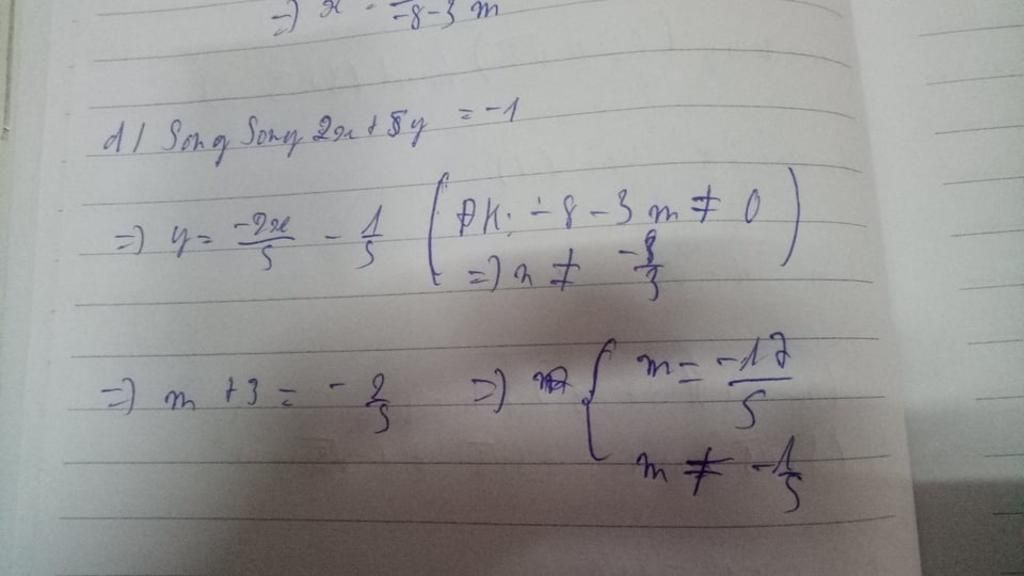 =) x = -8-3m
d/ Song Song 2x + 5y = -1
=) y = \frac{-2x}{5} - \frac{1}{5} ( ĐK: -8-3m ≠ 0
=) m ≠ \frac{-8}{3} )
=) m + 3 = -\frac{2}{5} =) { m = \frac{-17}{5}
m ≠ -\frac{1}{5}